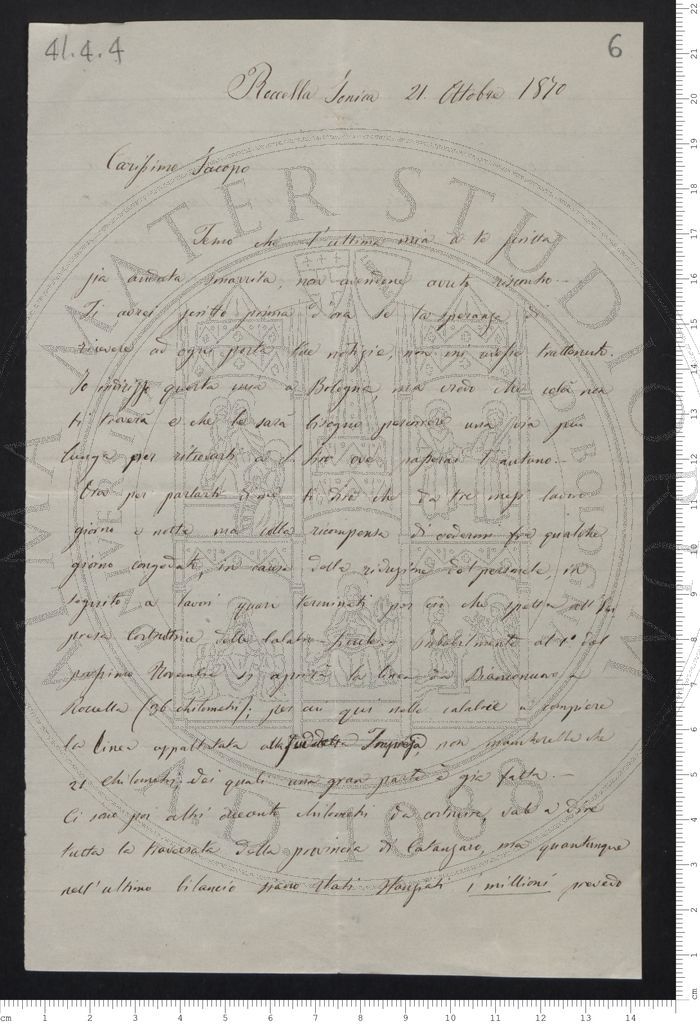 41.4.4
6
Roccella Jonica 21. Ottobre 1870
Carissimo Jacopo
Temo che l'ultima mia a te scritta
sia andata smarrita, non avendone avuto riscontro. -
Ti avrei scritto prima d'ora se la speranza di
ricevere ad ogni posta tue notizie, non mi avesse trattenuto.
Io indirizzo questa mia a Bologna, ma credo che costà non
ti troverà e che le sarà bisogno percorrere una via più
lunga per ritrovarti a ove passerai l'autunno. -
Ora per parlarti di me ti dirò che da tre mesi lavoro
giorno e notte ma colla ricompensa di vedermi fra qualche
giorno congedato, in causa della riduzione del personale, in
seguito a lavori quasi terminati per ciò che spetta all'Im
presa Costruttrice delle Calabro Sicule. - Probabilmente al 1° del
prossimo Novembre si aprirà la linea da Bianconuovo a
Roccella (36 chilometri); per cui qui nelle Calabrie a compiere
la linea appaltata alla suddetta Impresa non mancherebbe che
21 chilometri, dei quali una gran parte è già fatta. -
Ci sono poi altri duecento chilometri da costruire, vale a dire
tutta la traversata della provincia di Catanzaro, ma quantunque
nell'ultimo bilancio siano stati stanziati i millioni prevedo
ALMA MATER STUDIORUM
A.D. 1088